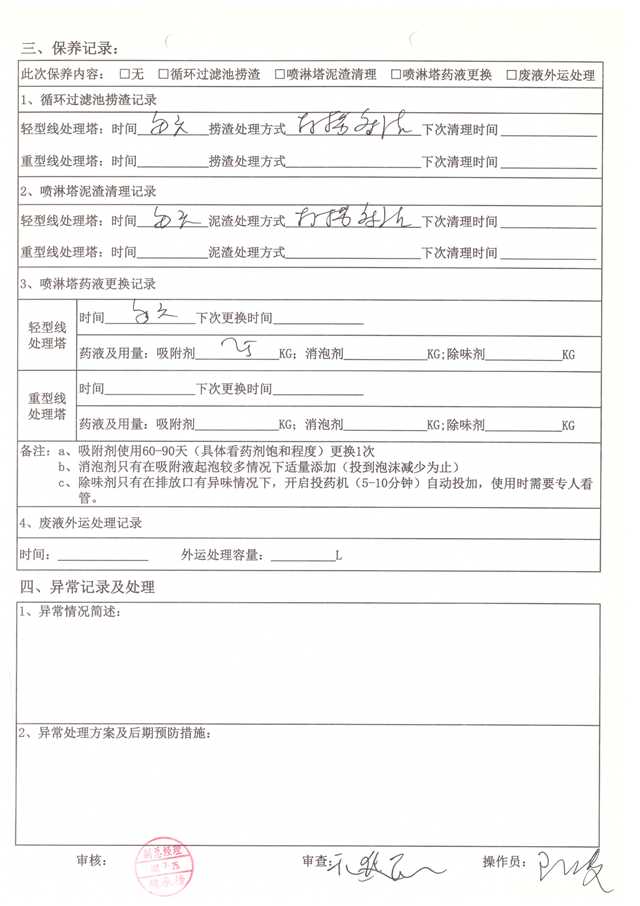 三、保养记录：
此次保养内容： □无 □循环过滤池捞渣 □喷淋塔泥渣清理 □喷淋塔药液更换 □废液外运处理
1、循环过滤池捞渣记录
轻型线处理塔：时间 每天 捞渣处理方式 下次清理时间
重型线处理塔：时间 捞渣处理方式 下次清理时间
2、喷淋塔泥渣清理记录
轻型线处理塔：时间 每天 泥渣处理方式 下次清理时间
重型线处理塔：时间 泥渣处理方式 下次清理时间
3、喷淋塔药液更换记录
轻型线处理塔
时间 每天 下次更换时间
药液及用量：吸附剂 KG；消泡剂 KG;除味剂 KG
重型线处理塔
时间 下次更换时间
药液及用量：吸附剂 KG；消泡剂 KG;除味剂 KG
备注：a、吸附剂使用60-90天（具体看药剂饱和程度）更换1次
b、消泡剂只有在吸附液起泡较多情况下适量添加（投到泡沫减少为止）
c、除味剂只有在排放口有异味情况下，开启投药机（5-10分钟）自动投加，使用时需要专人看
管。
4、废液外运处理记录
时间： 外运处理容量： L
四、异常记录及处理
1、异常情况简述：
2、异常处理方案及后期预防措施：
审核： 副总经理 审查： 操作员：